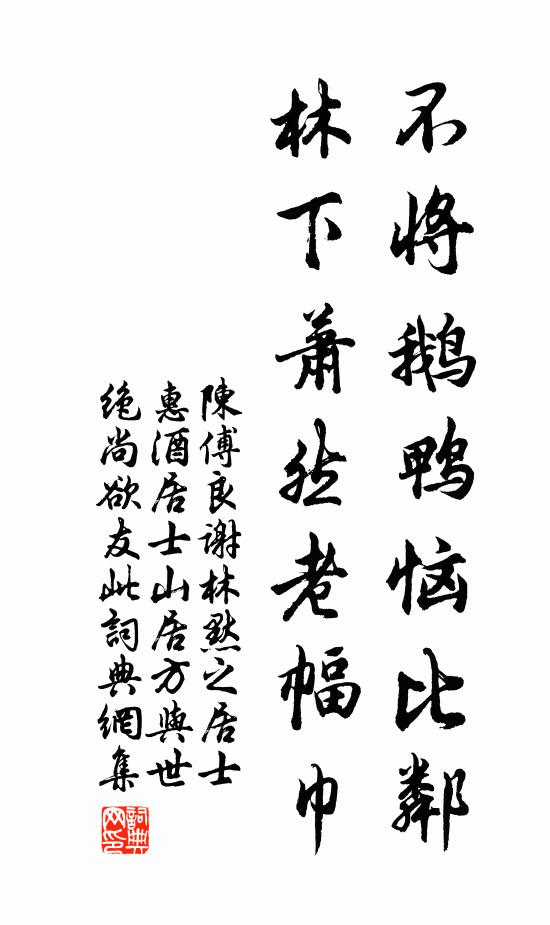 不将鹅鸭恼比鄰
林下萧然老幅巾
陳傅良谢林默之居士
惠酒居士山居方與世
绝尚欲友此詞典網集
詞典网印